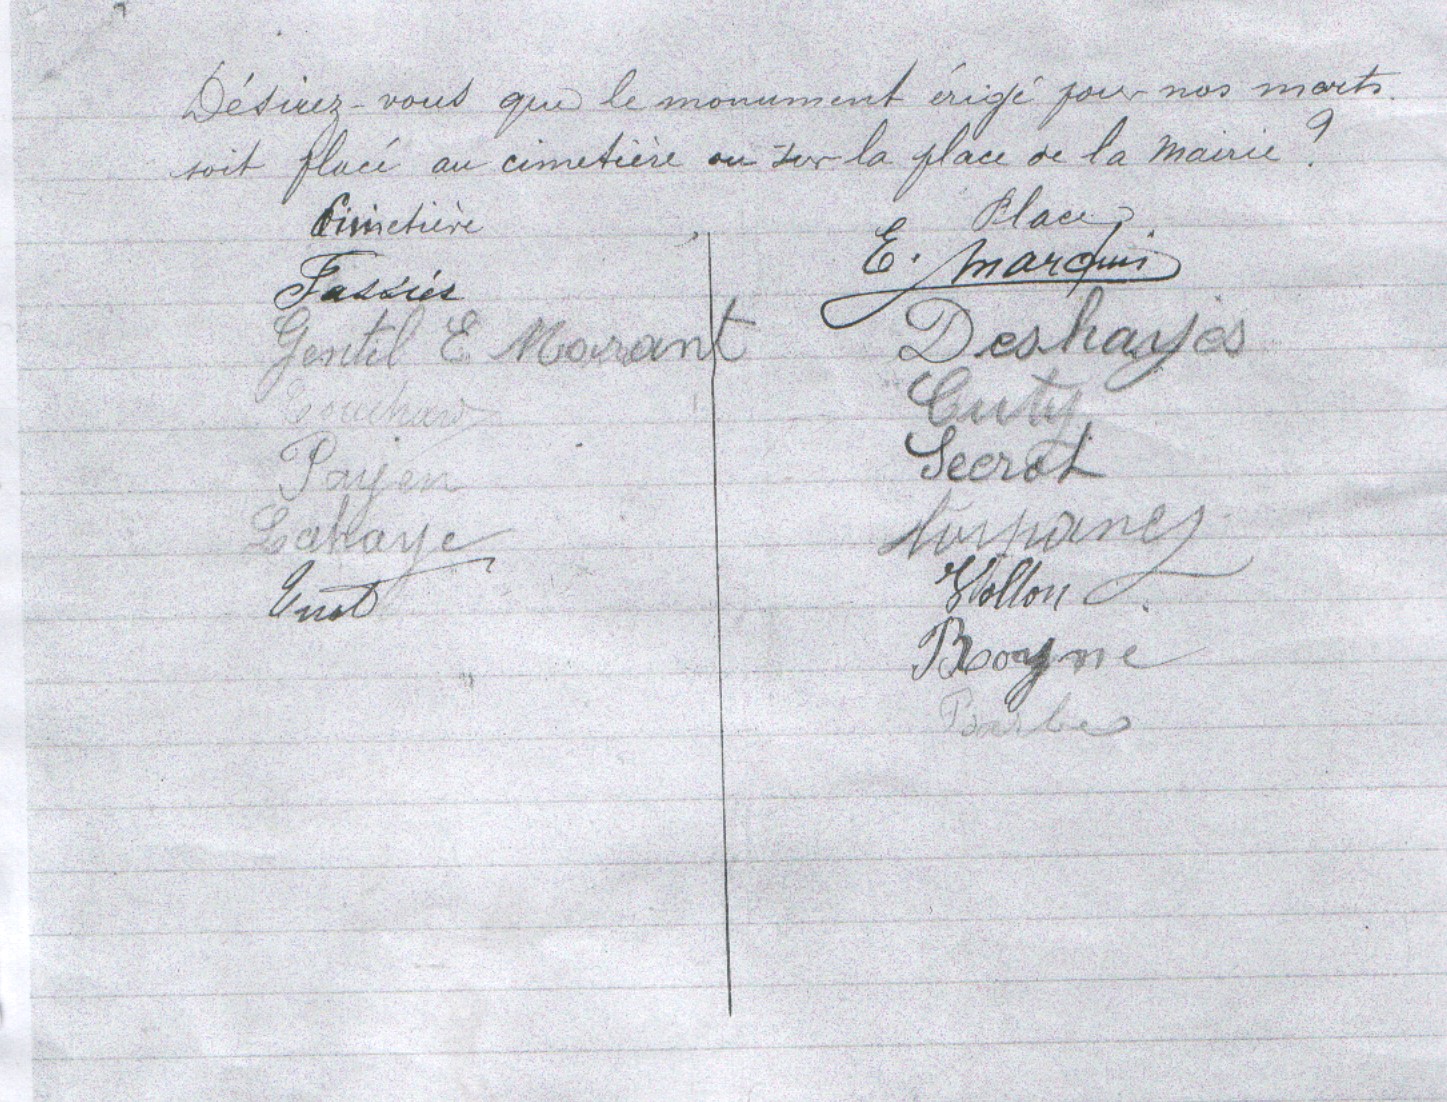 Désirez-vous que le monument érigé pour nos morts
soit placé au cimetière ou sur la place de la Mairie ?
Cimetière
Fassiés
Gentil E Morant
Payen
Lahaye
Place
E. Marquis
Deshayes
Cuty
Secrot
Wollon
Royne
Barbe